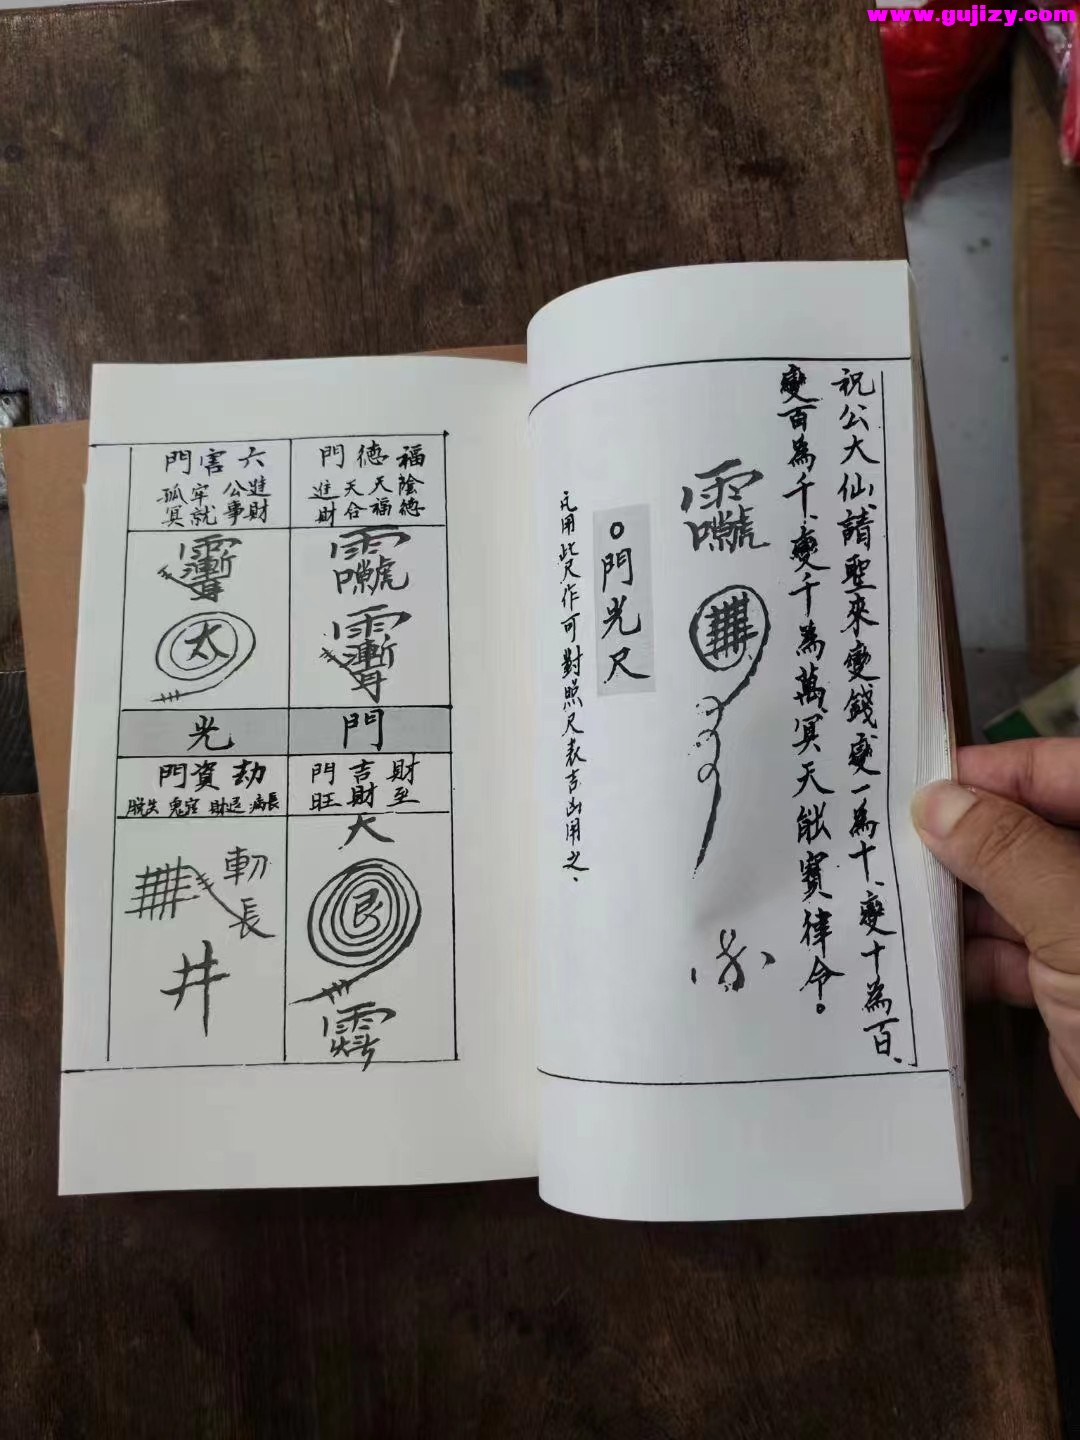 www.gujizy.com
祝公大仙請聖來變錢變一為十、變十為百、
變百為千、變千為萬、冥天能寶律令。
門光尺
凡用此尺作可對照尺表吉凶用之、
福德門
陰德
天福
天合
進財
六害門
進財
公事
牢就
孤冥
太
門
光
財吉門
財至
財旺
劫資門
長病
退財
官鬼
失脫
大
艮
長
井